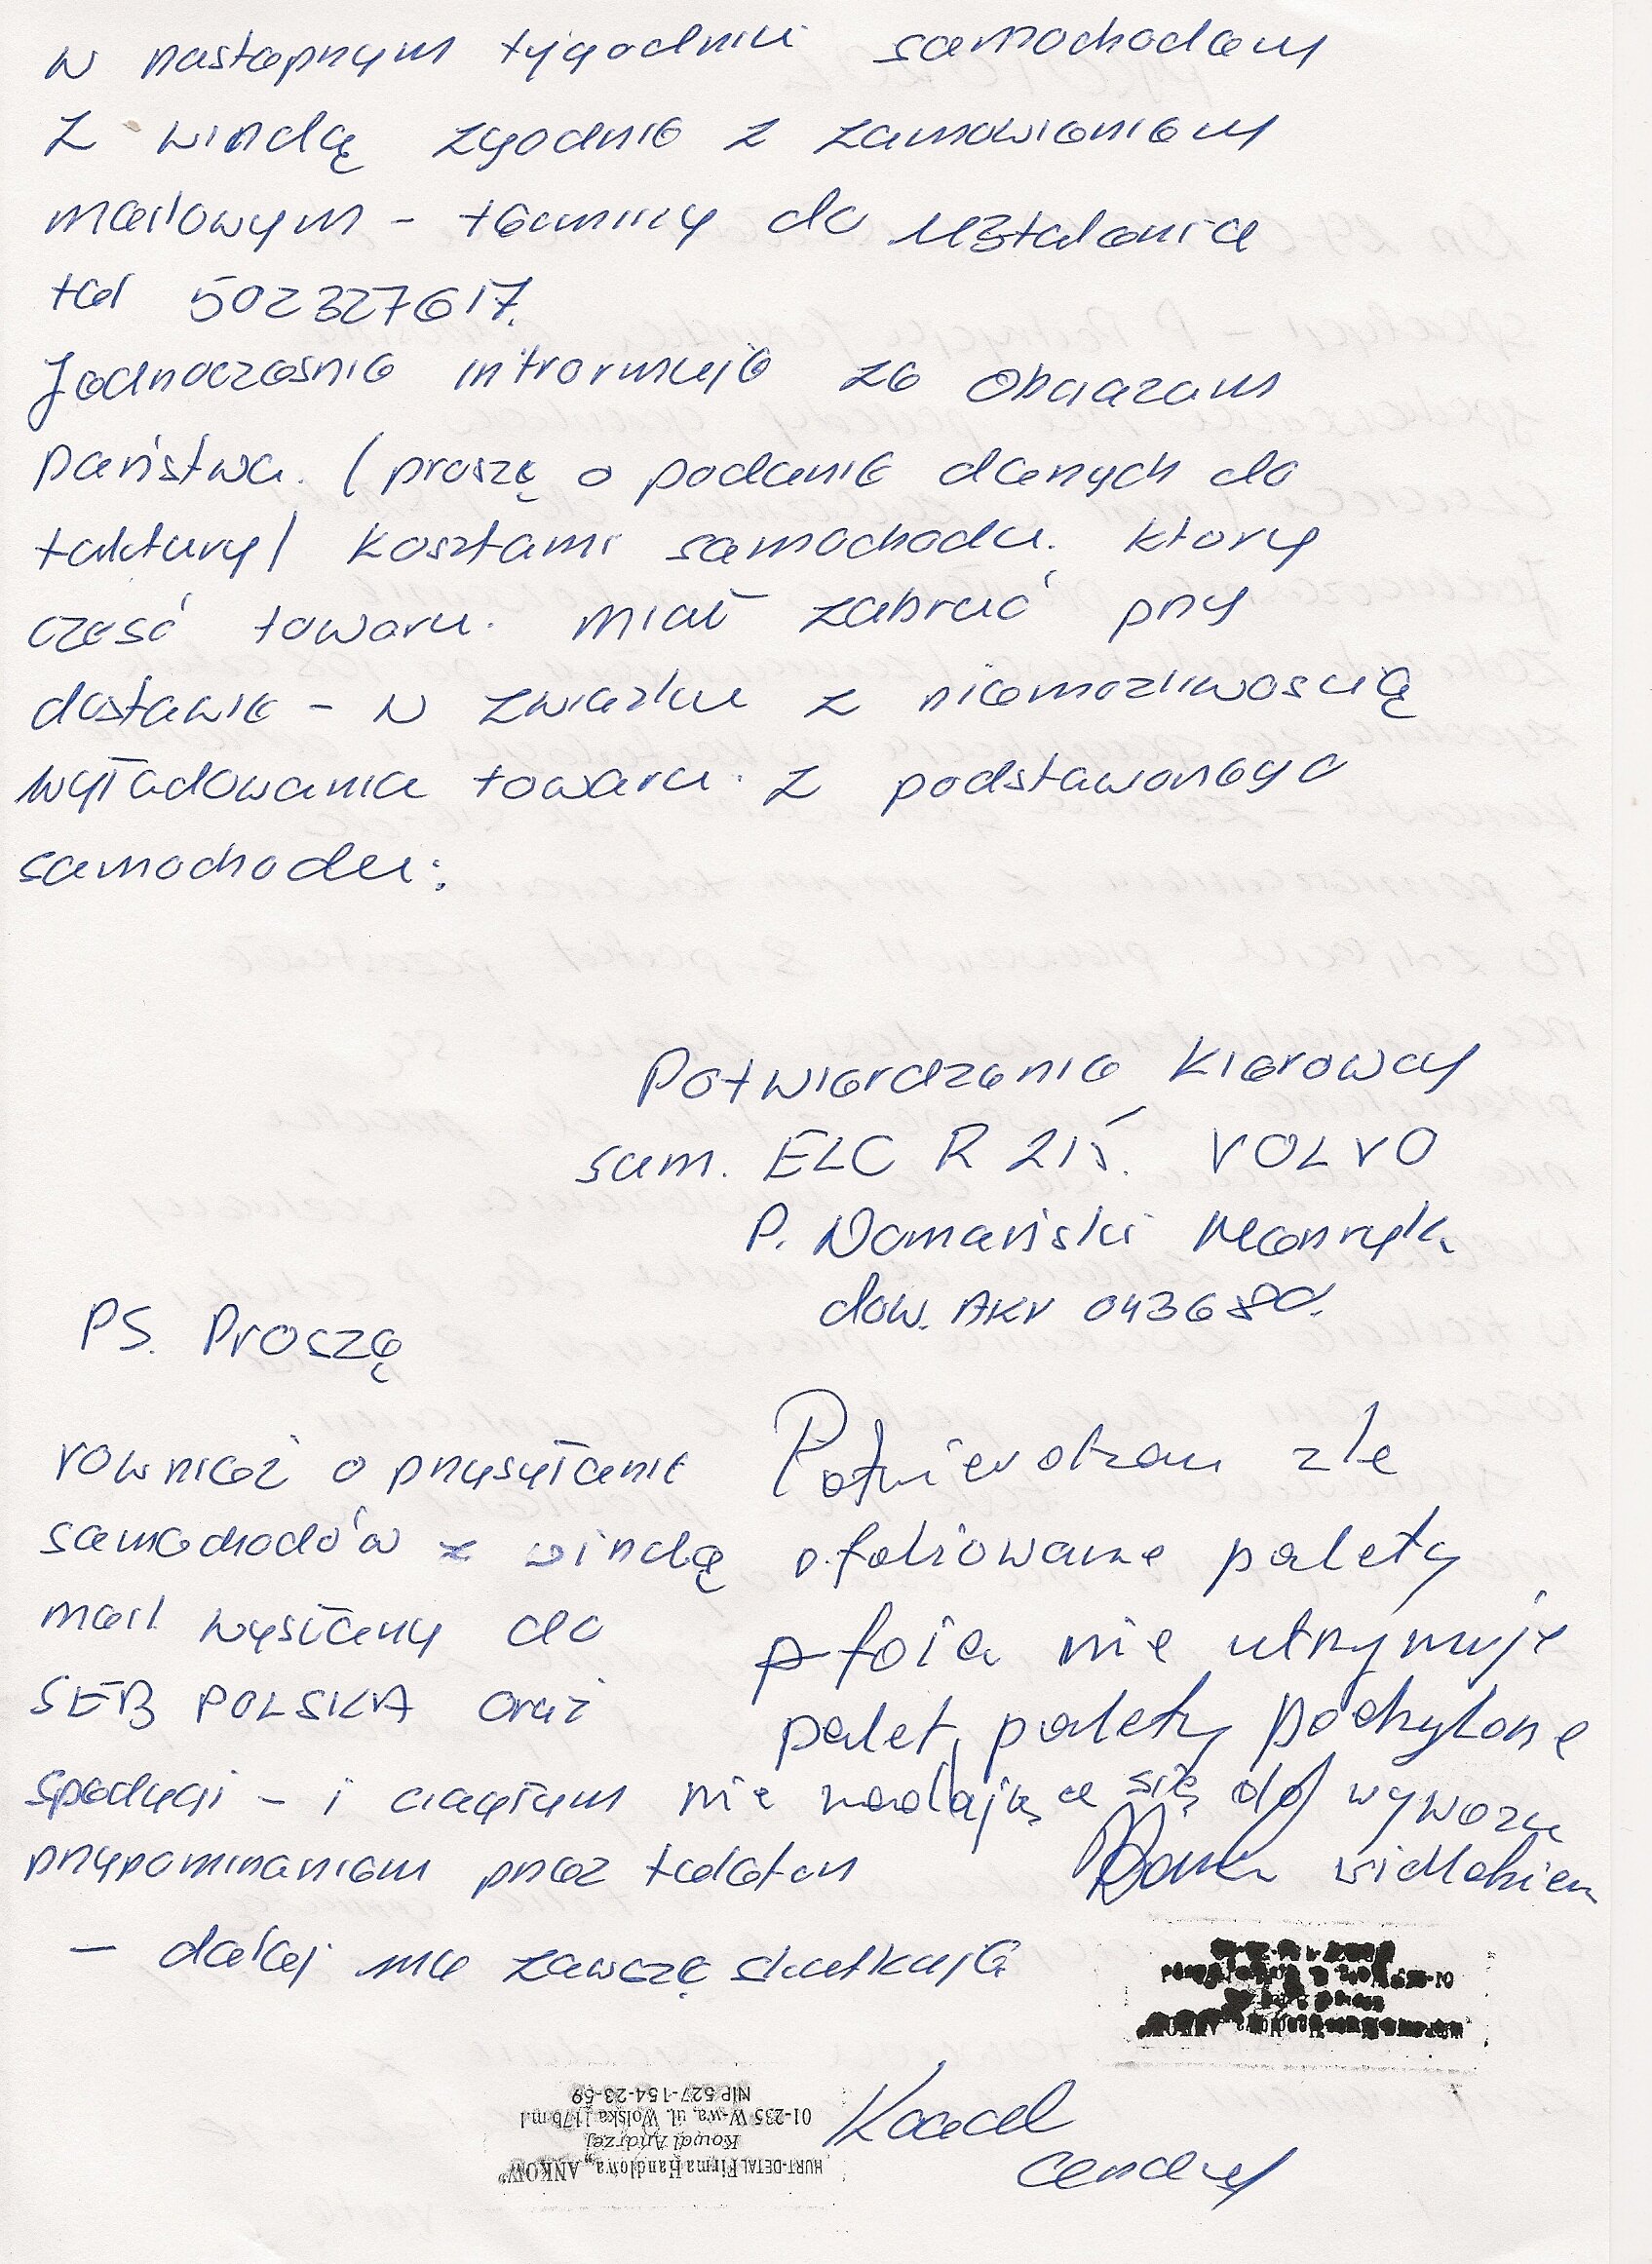 w nastepnym tygodniu samochodem
z windą zgodnie z zamowieniem
mailowym - terminy do ustalenia
tel 502327617.
Jednoczesnie informuje ze obciazam
państwa. (proszę o podanie danych do
faktury) kosztami samochodu. ktory
czesć towaru. miał zabrać przy
dostawie - w zwiazku z niemozliwoscią
wyładowania towaru. z podstawonego
samochodu.
Potwierdzenie kierowcy
sam. ELC R 215. VOLVO
P. Domański Henryk.
dow. AKV 043680.
PS. Proszę
rownież o przysyłanie
samochodów z windą
mail wysłany do
SEB POLSKA oraz
spedycji - i ciagłym
przypominaniem przez telefon
- dalej nie zawszę skutkuje
Potwierdzam zle
ofoliowane palety
folia nie utrzymuje
palet, palety pochylone
nie nadające się do wywozu
widlakiem
HURT-DETAL Firma Handlowa „ANKOW”
Kowal Andrzej
01-235 W-wa, ul. Wolska 117b m.1
NIP 527-154-23-59
Kowal